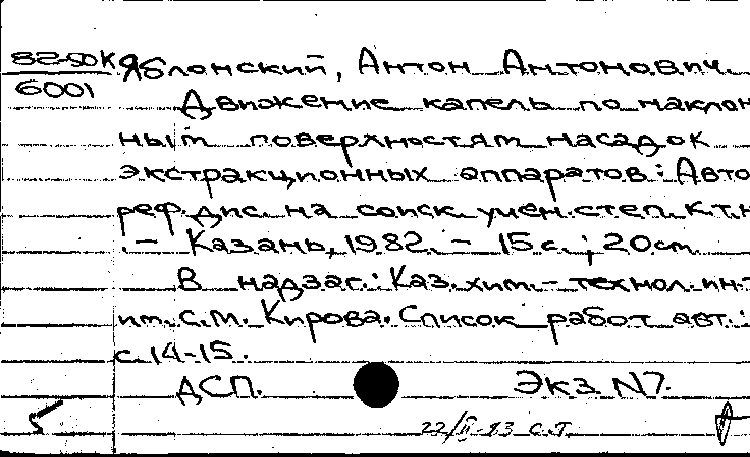 82-50К Яблонский, Антон Антонович.
6001
Движение капель по наклон
ным поверхностям насадок
экстракционных аппаратов: Авто
реф. дис. на соиск. учен. степ. к.т.н
. – Казань, 1982. – 15 с.; 20 см.
В надзаг.: Каз. хим.-технол. ин-
им. С.М. Кирова. Список работ авт.:
с. 14-15.
ДСП. Экз. N7.
5
22/II-83 С.Т.